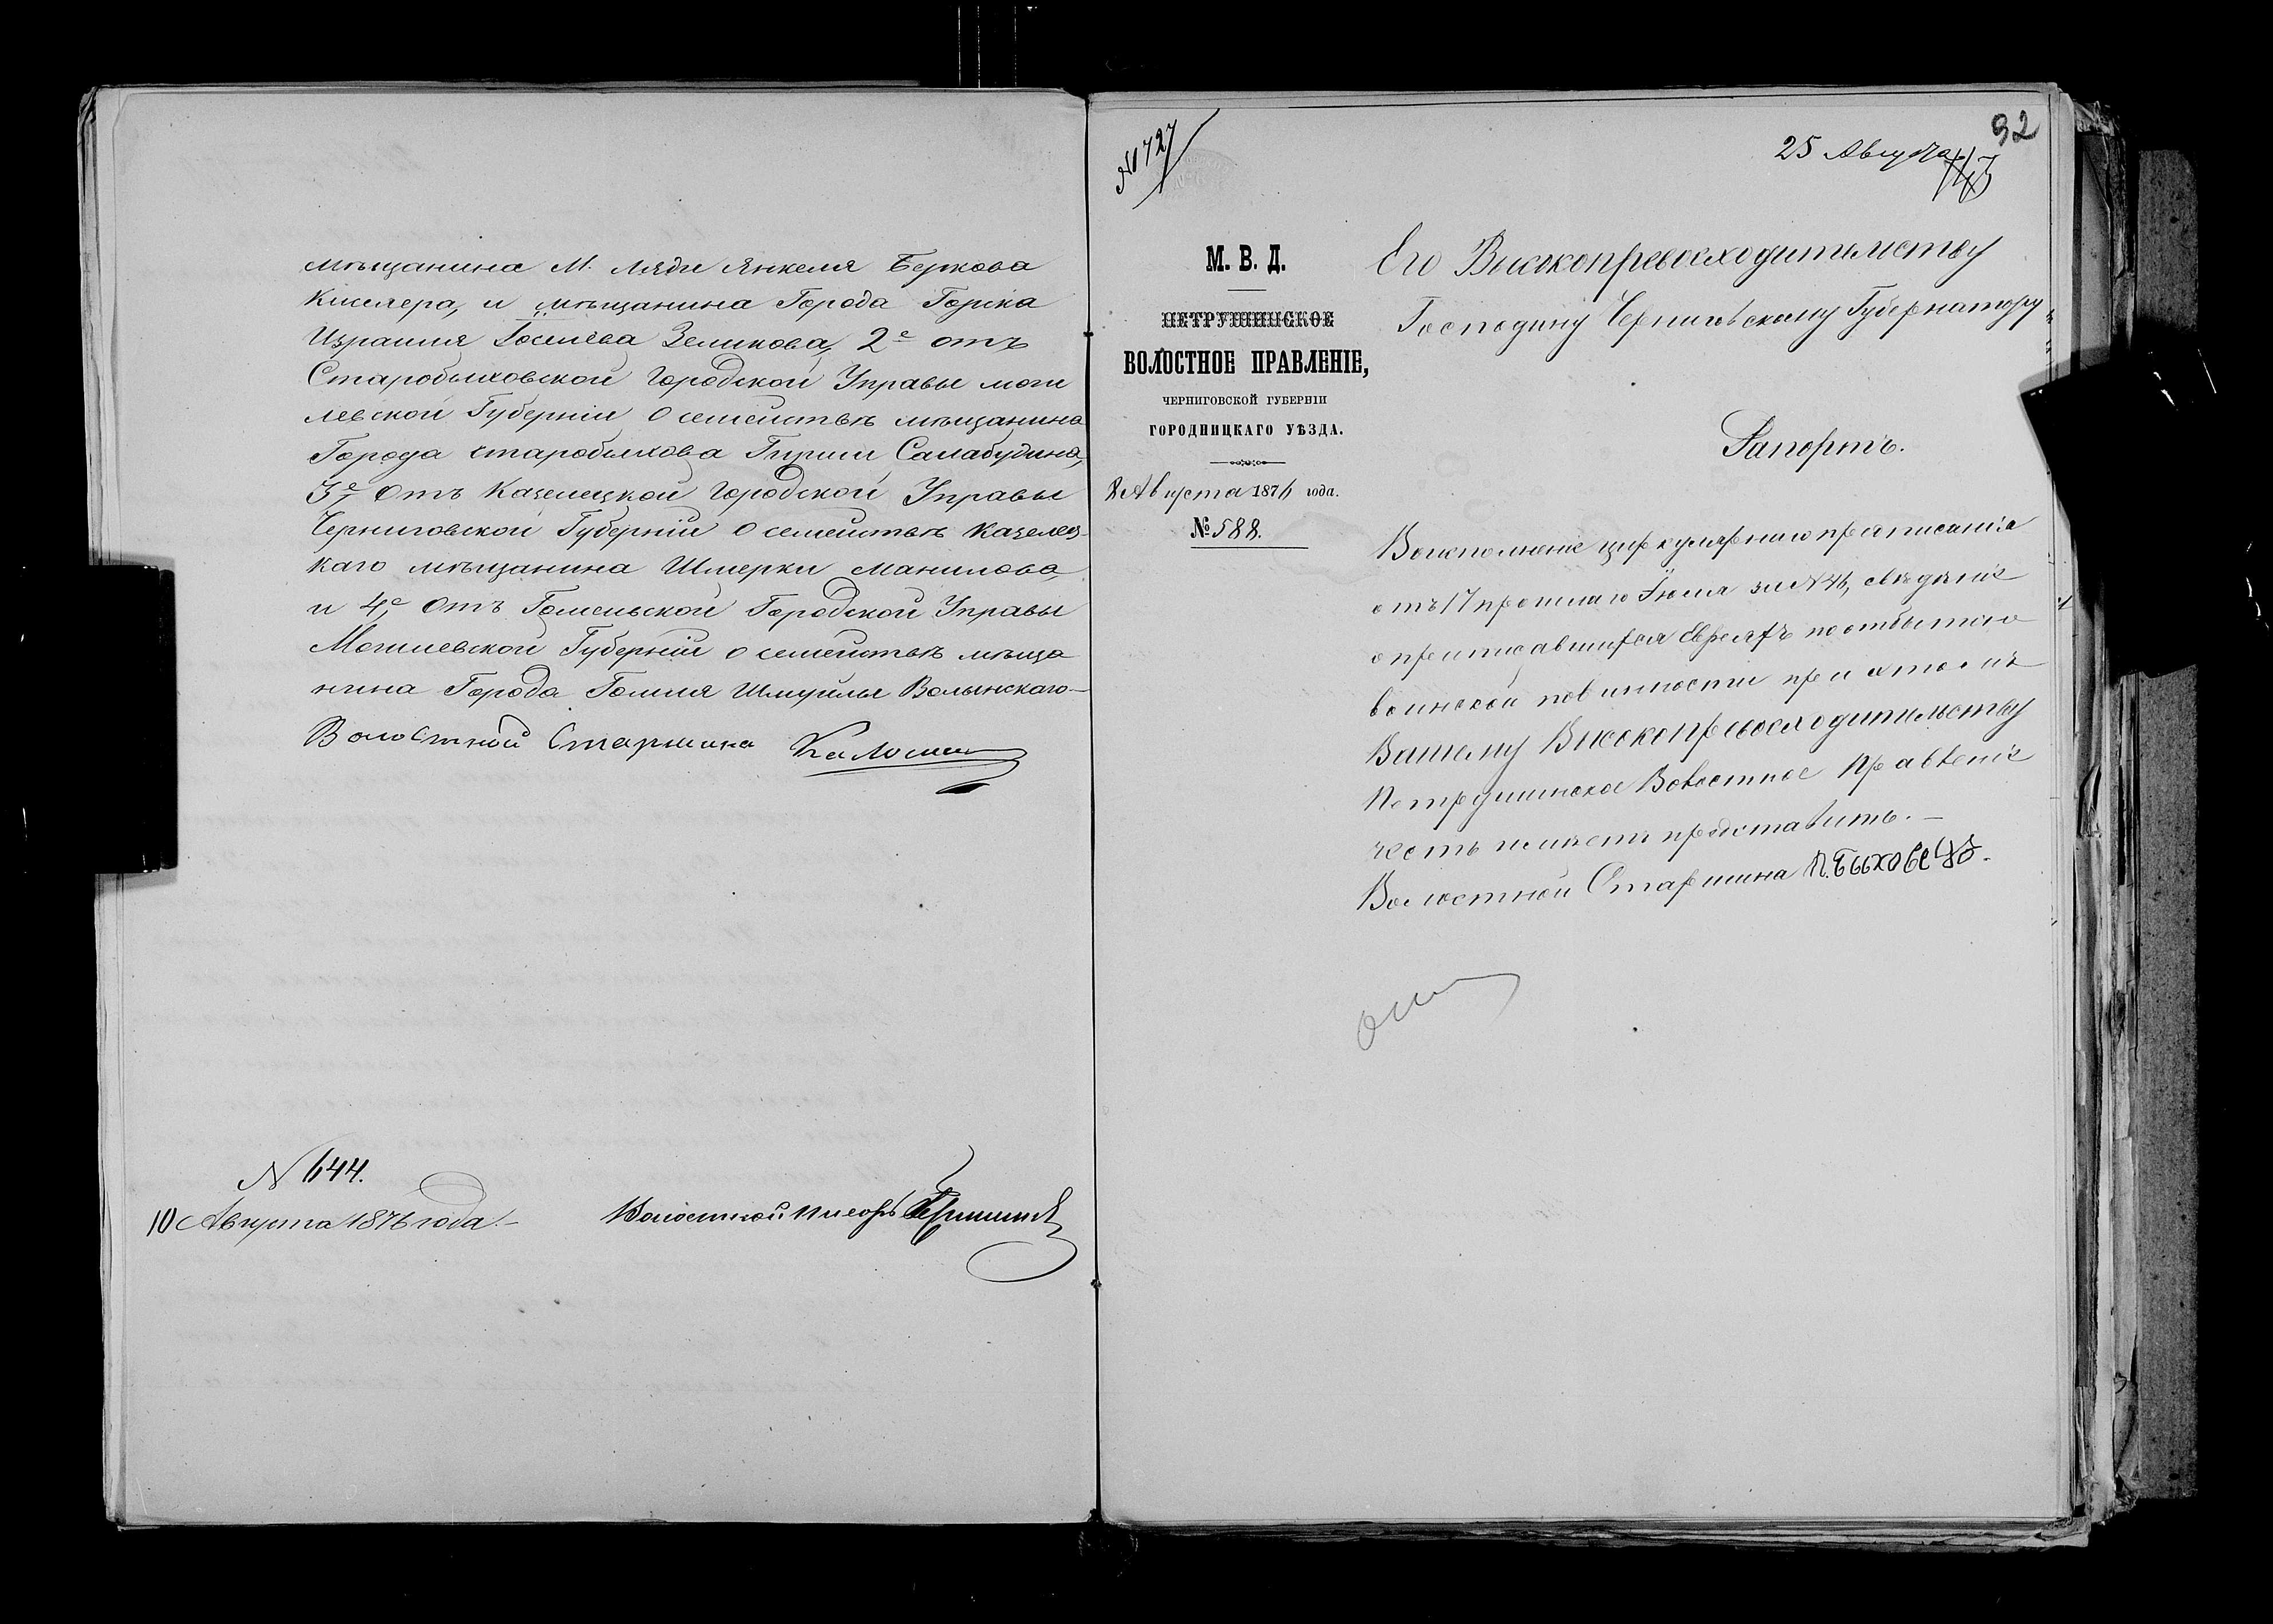 мѣщанина М. Ляди Янкеля Беркова
Кислера, и мѣщанина Города Горка
Израиля Іосиева Зеликова, 2е отъ
Старобыховской Городской Управы моги
левской Губерніи о семействѣ мѣщанина
Города старобыхова Гирши Салабудина,
3е Отъ Казелецкой Городской Управы
Черниговской Губерніи о семействѣ казелец-
каго мѣщанина Шмерки Манилова,
и 4е Отъ Гомельской Городской Управы
Могилевской Губерніи о семействѣ мѣща
нина Города Гомеля Шмуйлы Волынскаго
Волостной Старшина
N 644.
10 Августа 1876 года.
Волостной Писарь
N 1727
25 Августа
92
М. В. Д.
ПЕТРУШИНСКОЕ
ВОЛОСТНОЕ ПРАВЛЕНІЕ,
ЧЕРНИГОВСКОЙ ГУБЕРНІИ
ГОРОДНИЦКАГО УѢЗДА.
8 Августа 1876 года.
№ 588.
Его Высокопревосходительству
Господину Черниговскому Губернатору
Рапортъ.
Воисполненіе циркулярнаго предписанія
отъ 17 прошлаго Іюля за N 46, свѣдѣніе
о приписавшихся Евреяхъ по отбытію
воинской повинности при этомъ
Вашему Высокопревосходительству
Петрушинское Волостное Правленіе
честь имѣетъ представить.
Волостной Старшина П. Быховецъ.